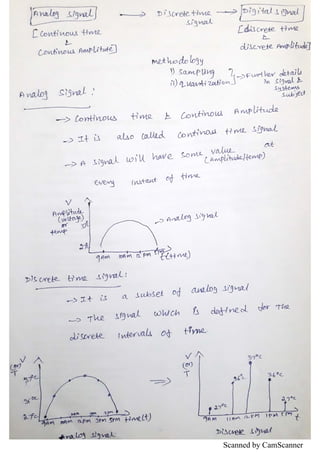 Analog Signal → Discrete time signal → Digital signal
[Continous time & Continous Amplitude]
[discrete time & discrete Amplitude]
Methodology
i) sampling
ii) quantization
→ Further details in signal & systems subject
Analog Signal :
→ Continous time & Continous Amplitude
→ It is also called Continous time signal
→ A signal will have some value (amplitude/temp) at
every instant of time
V
Amplitude (voltage) or temp
→ Analog signal
9AM 10AM 12 PM
t(time)
Discrete time signal:
→ It is a subset of analog signal
→ The signal which is defined for the
discrete intervals of time
V (or) T
27°C
time(t)
Analog signal
⇒
V (or) T
27°C
37°C
36°C
27°C
t
Discrete signal
Scanned by CamScanner